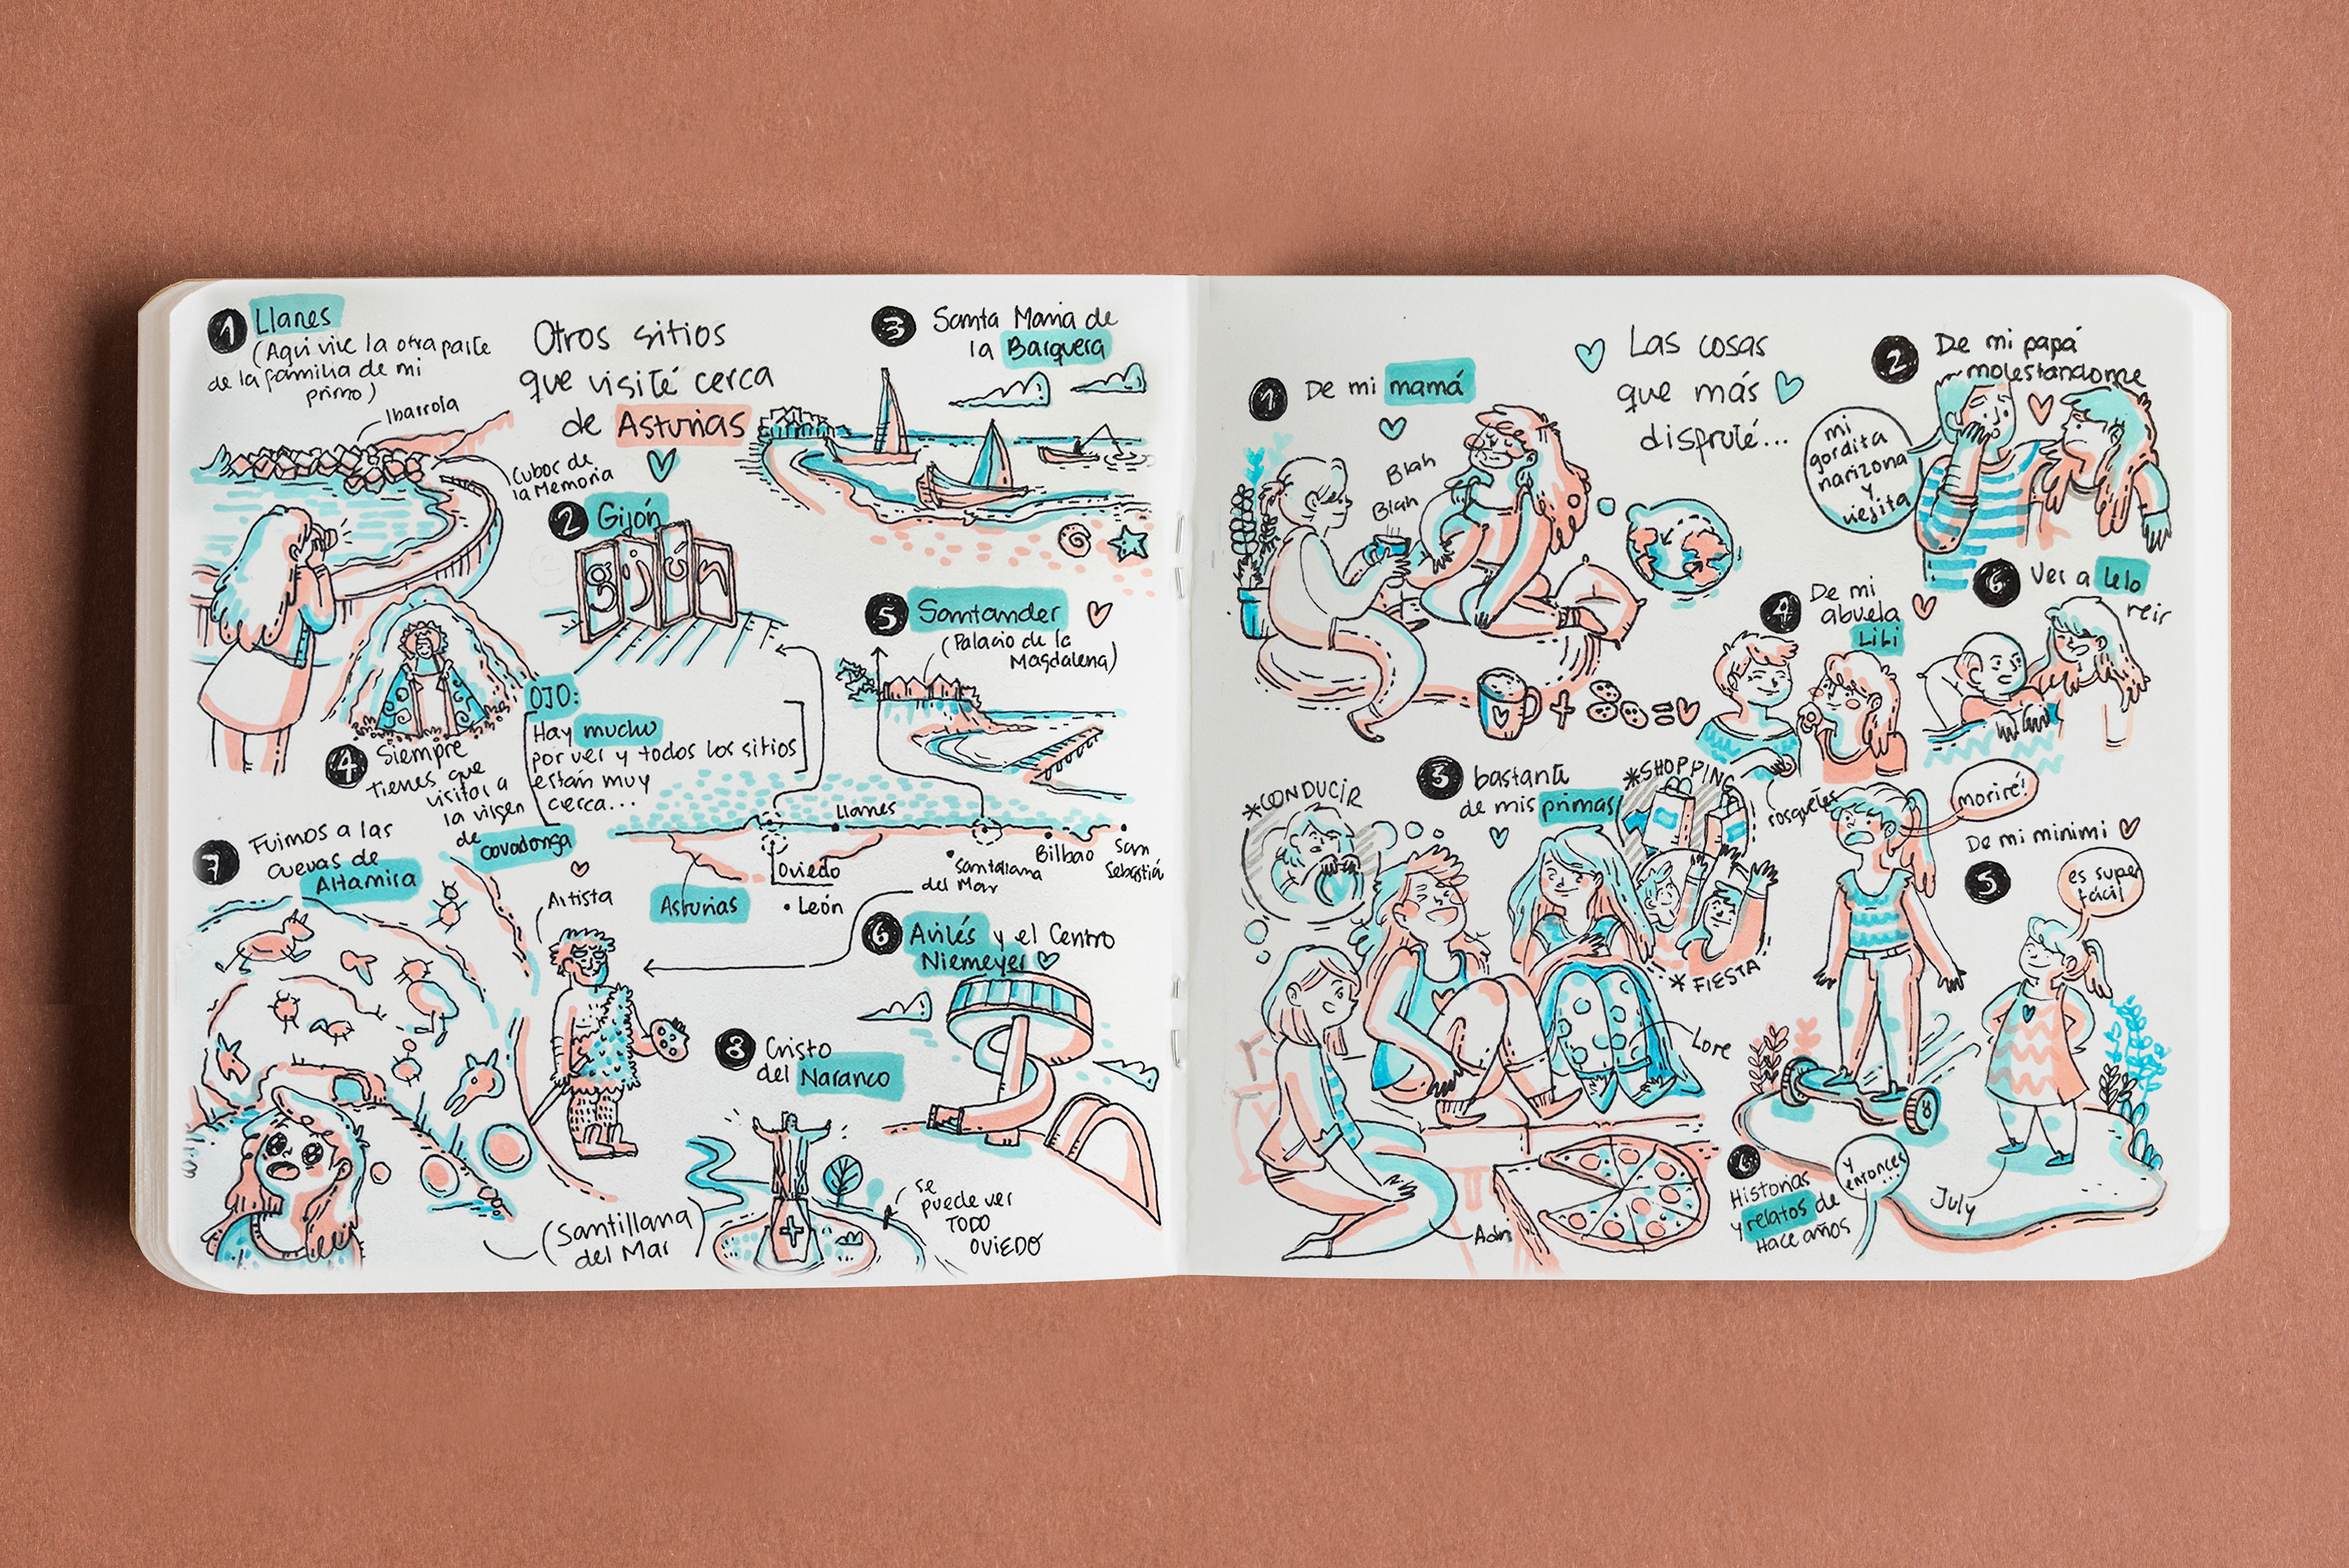 1 Llanes
(Aquí vive la otra parte
de la familia de mi
primo)
Ibarrola
Cubos de
la Memoria
Otros sitios
que visité cerca
de Asturias
2 Gijón
gijón
3 Santa Maria de
la Barquera
4 Siempre
tienes que
visitar a
la virgen
de
covadonga
OJO:
Hay mucho
por ver y todos los sitios
están muy
cerca...
5 Santander
(Palacio de la
Magdalena)
Llanes
Oviedo
Asturias
• León
• Santillana
del Mar
Bilbao
San
Sebastián
6 Avilés y el Centro
Niemeyer
7 Fuimos a las
cuevas de
Altamira
Artista
(Santillana
del Mar)
8 Cristo
del Naranco
se
puede ver
TODO
OVIEDO
Las cosas
que más
disfruté...
1 De mi mamá
Blah
Blah
2 De mi papá
molestandome
mi
gordita
narizona
y
viejita
3 bastante
de mis primas
*CONDUCIR
*SHOPPING
* FIESTA
Lore
Adri
4 De mi
abuela
Lili
rosquetes
6 Ver a Lelo
reir
moriré!
De mi minimi
5
es super
fácil
July
6
Historias
y relatos de
Hace años
y
entonces...